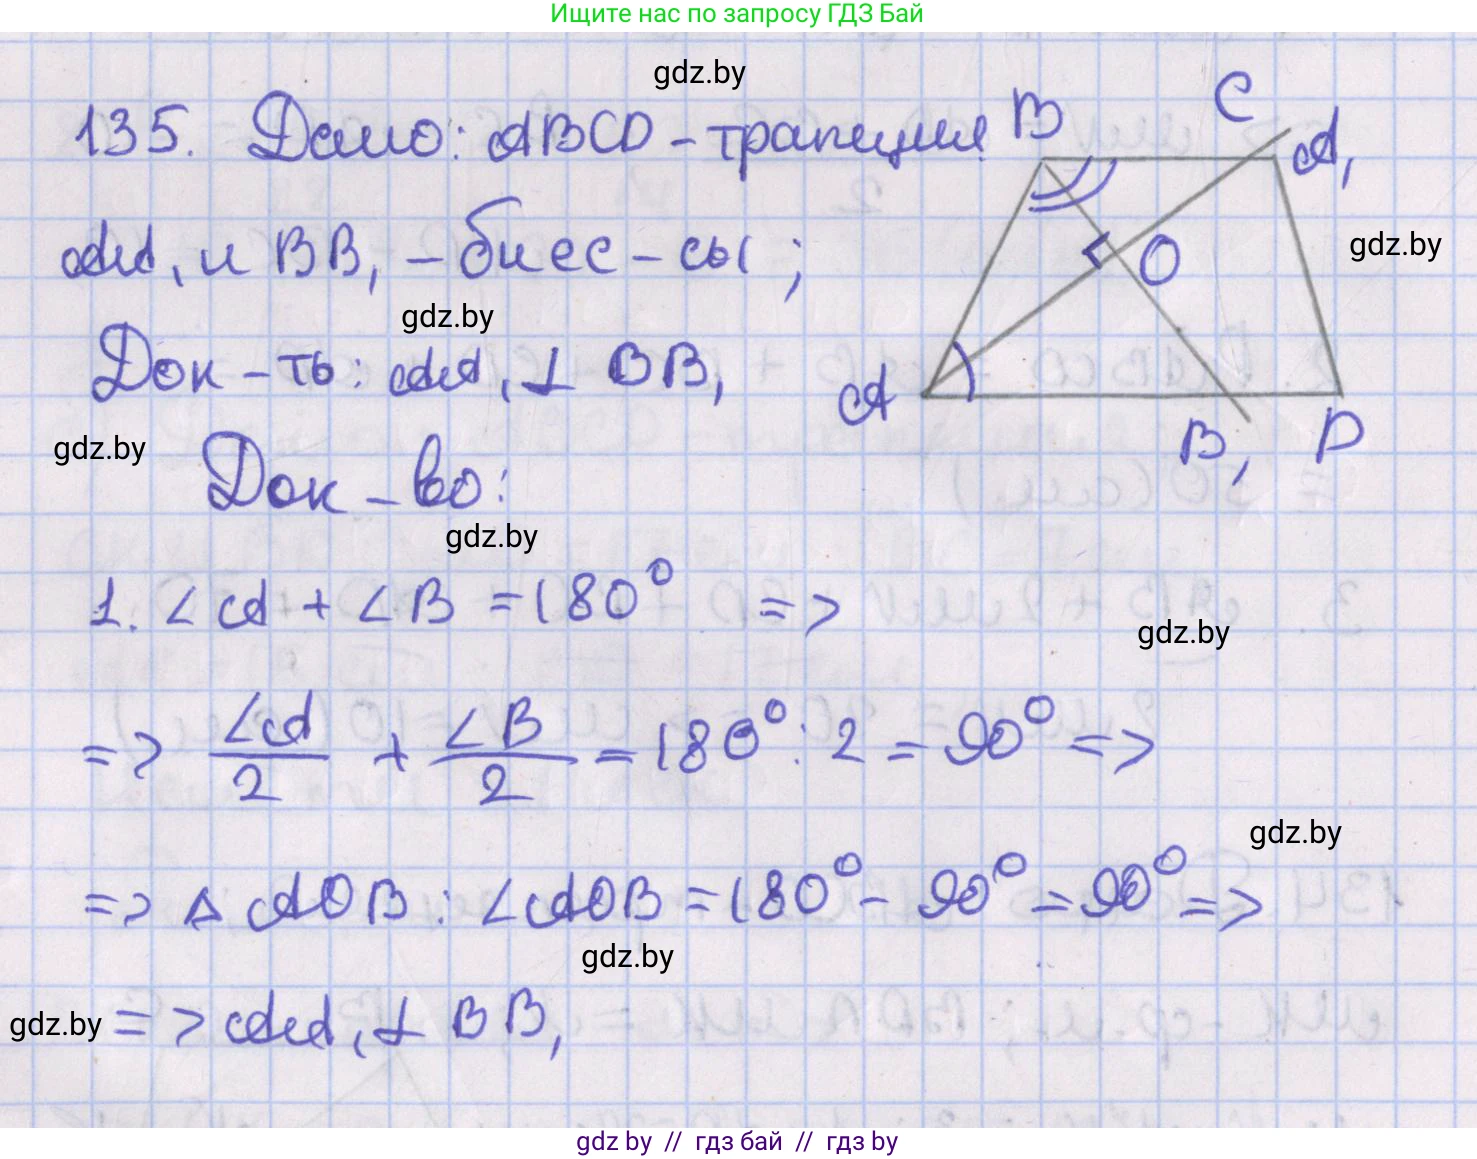 Ищите нас по запросу ГДЗ Бай
gdz.by
135. Дано: ABCD – трапеция
B
C
A₁
AA₁ и BB₁ – биес-сы;
gdz.by
O
gdz.by
Док-ть: AA₁ ⊥ BB₁
A
B₁
D
gdz.by
Док-во:
gdz.by
1. ∠A + ∠B = 180° =>
gdz.by
=> ∠A/2 + ∠B/2 = 180° : 2 = 90° =>
gdz.by
=> △ AOB : ∠AOB = 180° – 90° = 90° =>
gdz.by
gdz.by => AA₁ ⊥ BB₁
gdz by // гдз бай // гдз by